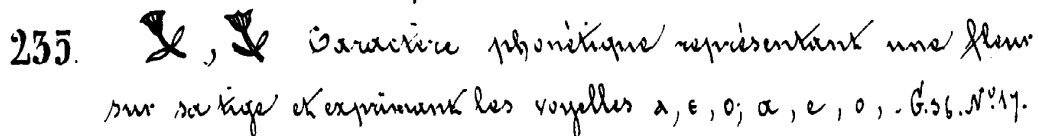 235. , Caractère phonétique représentant une fleur
sur sa tige et exprimant les voyelles a, e, o; α, ε, ο, . G. 36. Nº 17.